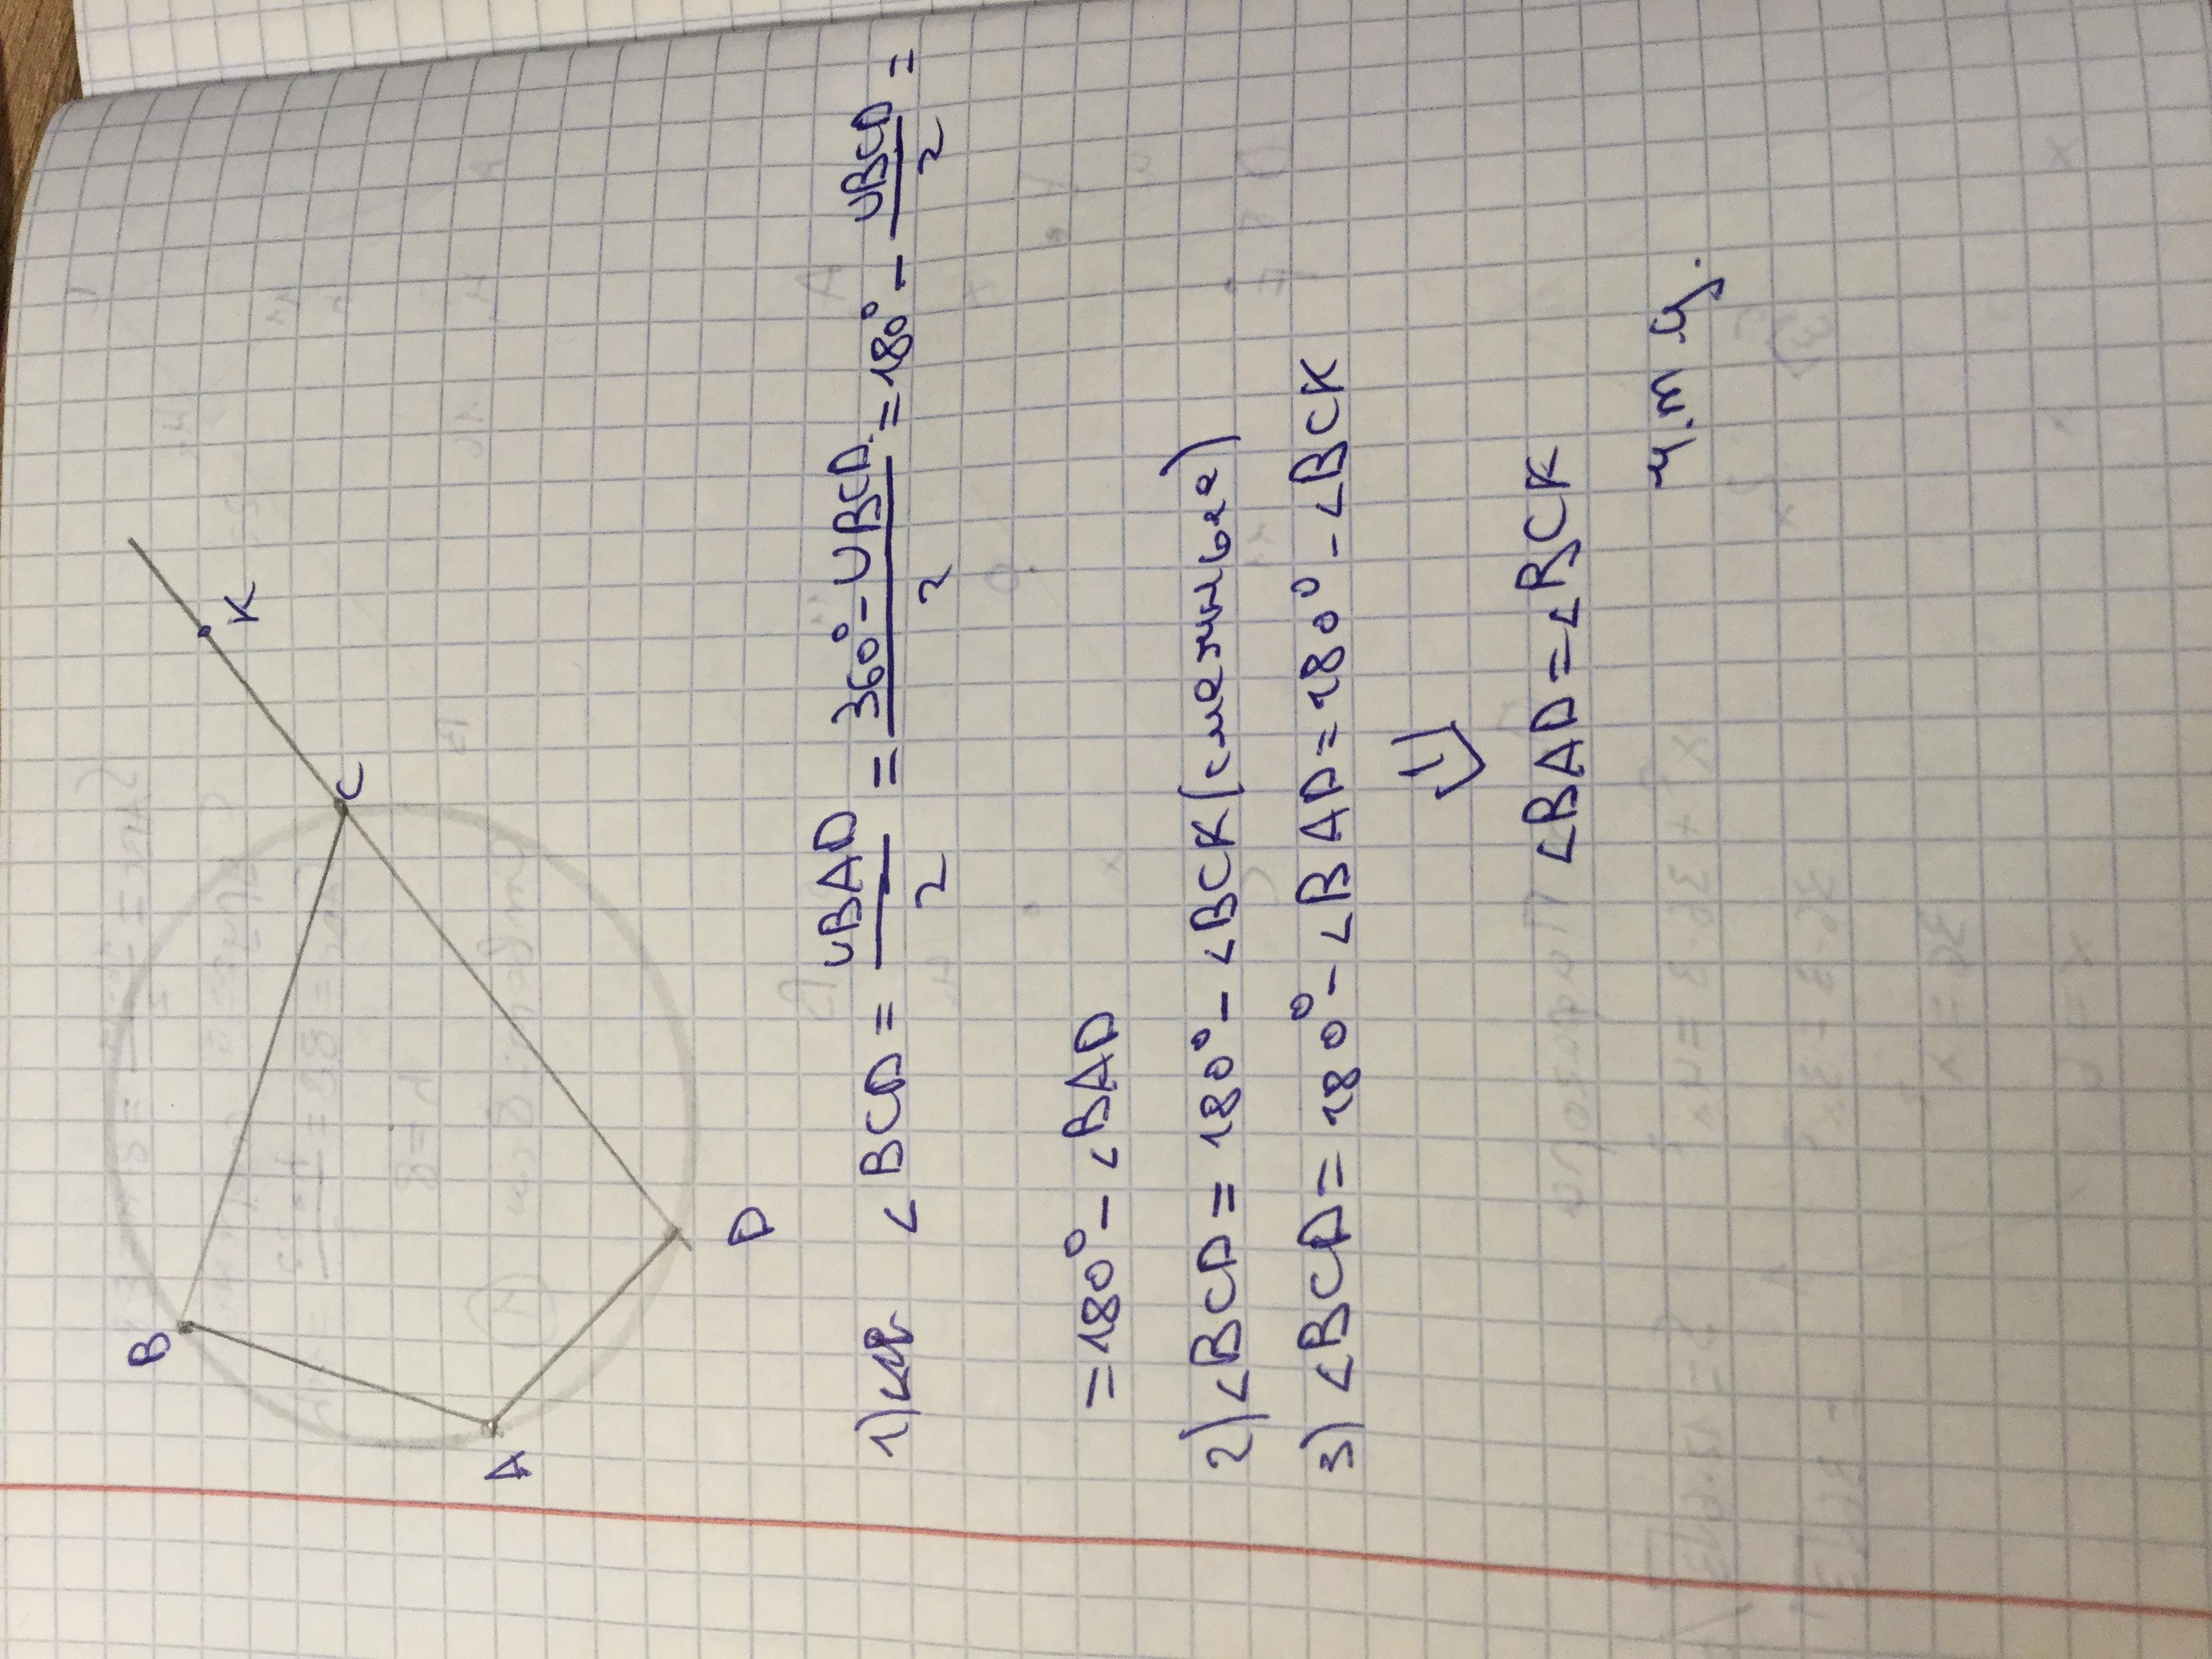 B
C
K
A
D
1) ∠BCD = ∪BAD/2 = (360° - ∪BCD)/2 = 180° - ∪BCD/2 =
= 180° - ∠BAD
2) ∠BCD = 180° - ∠BCK (смежные)
3) ∠BCD = 180° - ∠BAD = 180° - ∠BCK
⇓
∠BAD = ∠BCK
ч.т.д.